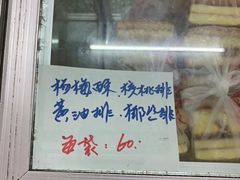 杨梅酥.核桃排
黄油排.椰丝排
每袋:60.